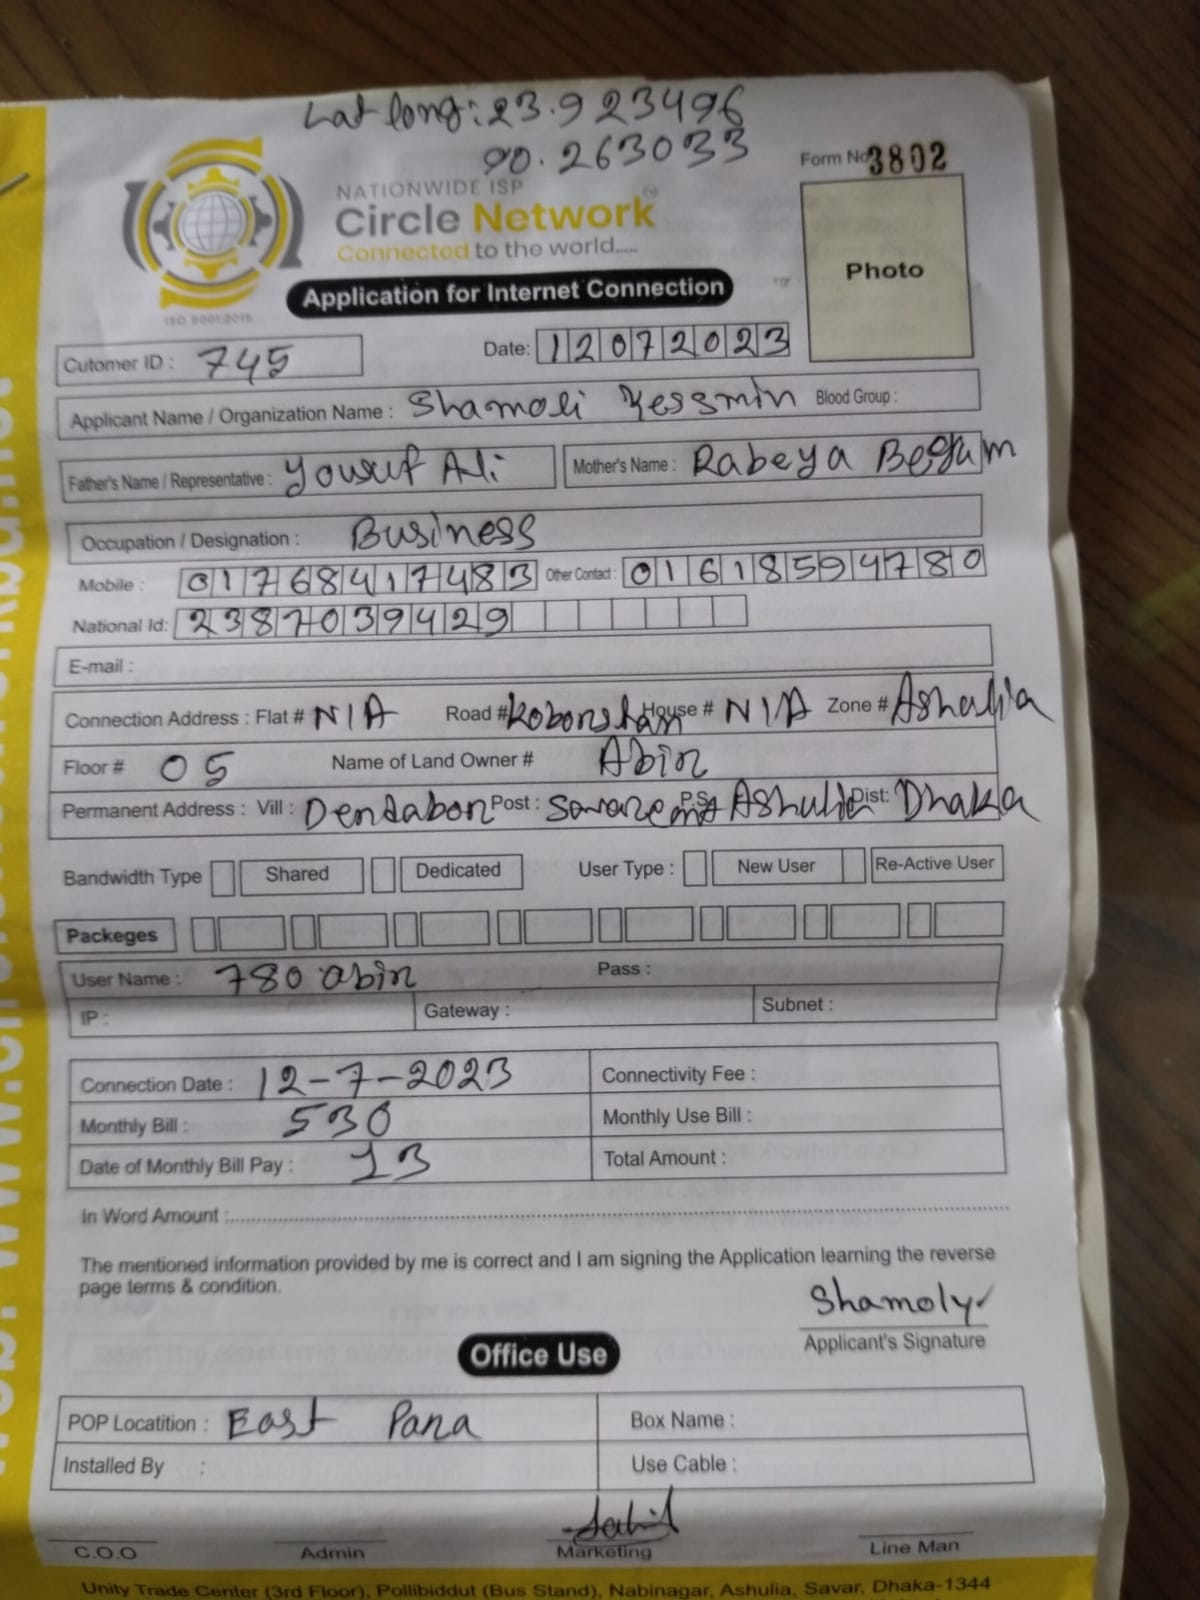 Lat long: 23.923496
90.263033
Form No 3802
NATIONWIDE ISP
Circle Network
Connected to the world.....
ISO 9001:2015
Application for Internet Connection
Photo
Cutomer ID : 745 Date: 12072023
Applicant Name / Organization Name : Shamoli Yessmin Blood Group :
Father's Name / Representative : Yousuf Ali Mother's Name : Rabeya Begum
Occupation / Designation : Business
Mobile : 01768417483 Other Contact : 01618594780
National Id: 2387039429
E-mail :
Connection Address : Flat # N/A Road # Kobonsthan House # N/A Zone # Ashulia
Floor # 05 Name of Land Owner # Abin
Permanent Address : Vill : Dendabon Post : P.S: Ashulia Dist: Dhaka
Bandwidth Type Shared Dedicated User Type : New User Re-Active User
Packeges
User Name : 780 abin Pass :
IP : Gateway : Subnet :
Connection Date : 12-7-2023 Connectivity Fee :
Monthly Bill : 530 Monthly Use Bill :
Date of Monthly Bill Pay : 13 Total Amount :
In Word Amount :
The mentioned information provided by me is correct and I am signing the Application learning the reverse
page terms & condition.
Shamoly
Applicant's Signature
Office Use
POP Locatition : East Para Box Name :
Installed By : Use Cable :
C.O.O Admin Marketing Line Man
Unity Trade Center (3rd Floor), Pollibiddut (Bus Stand), Nabinagar, Ashulia, Savar, Dhaka-1344